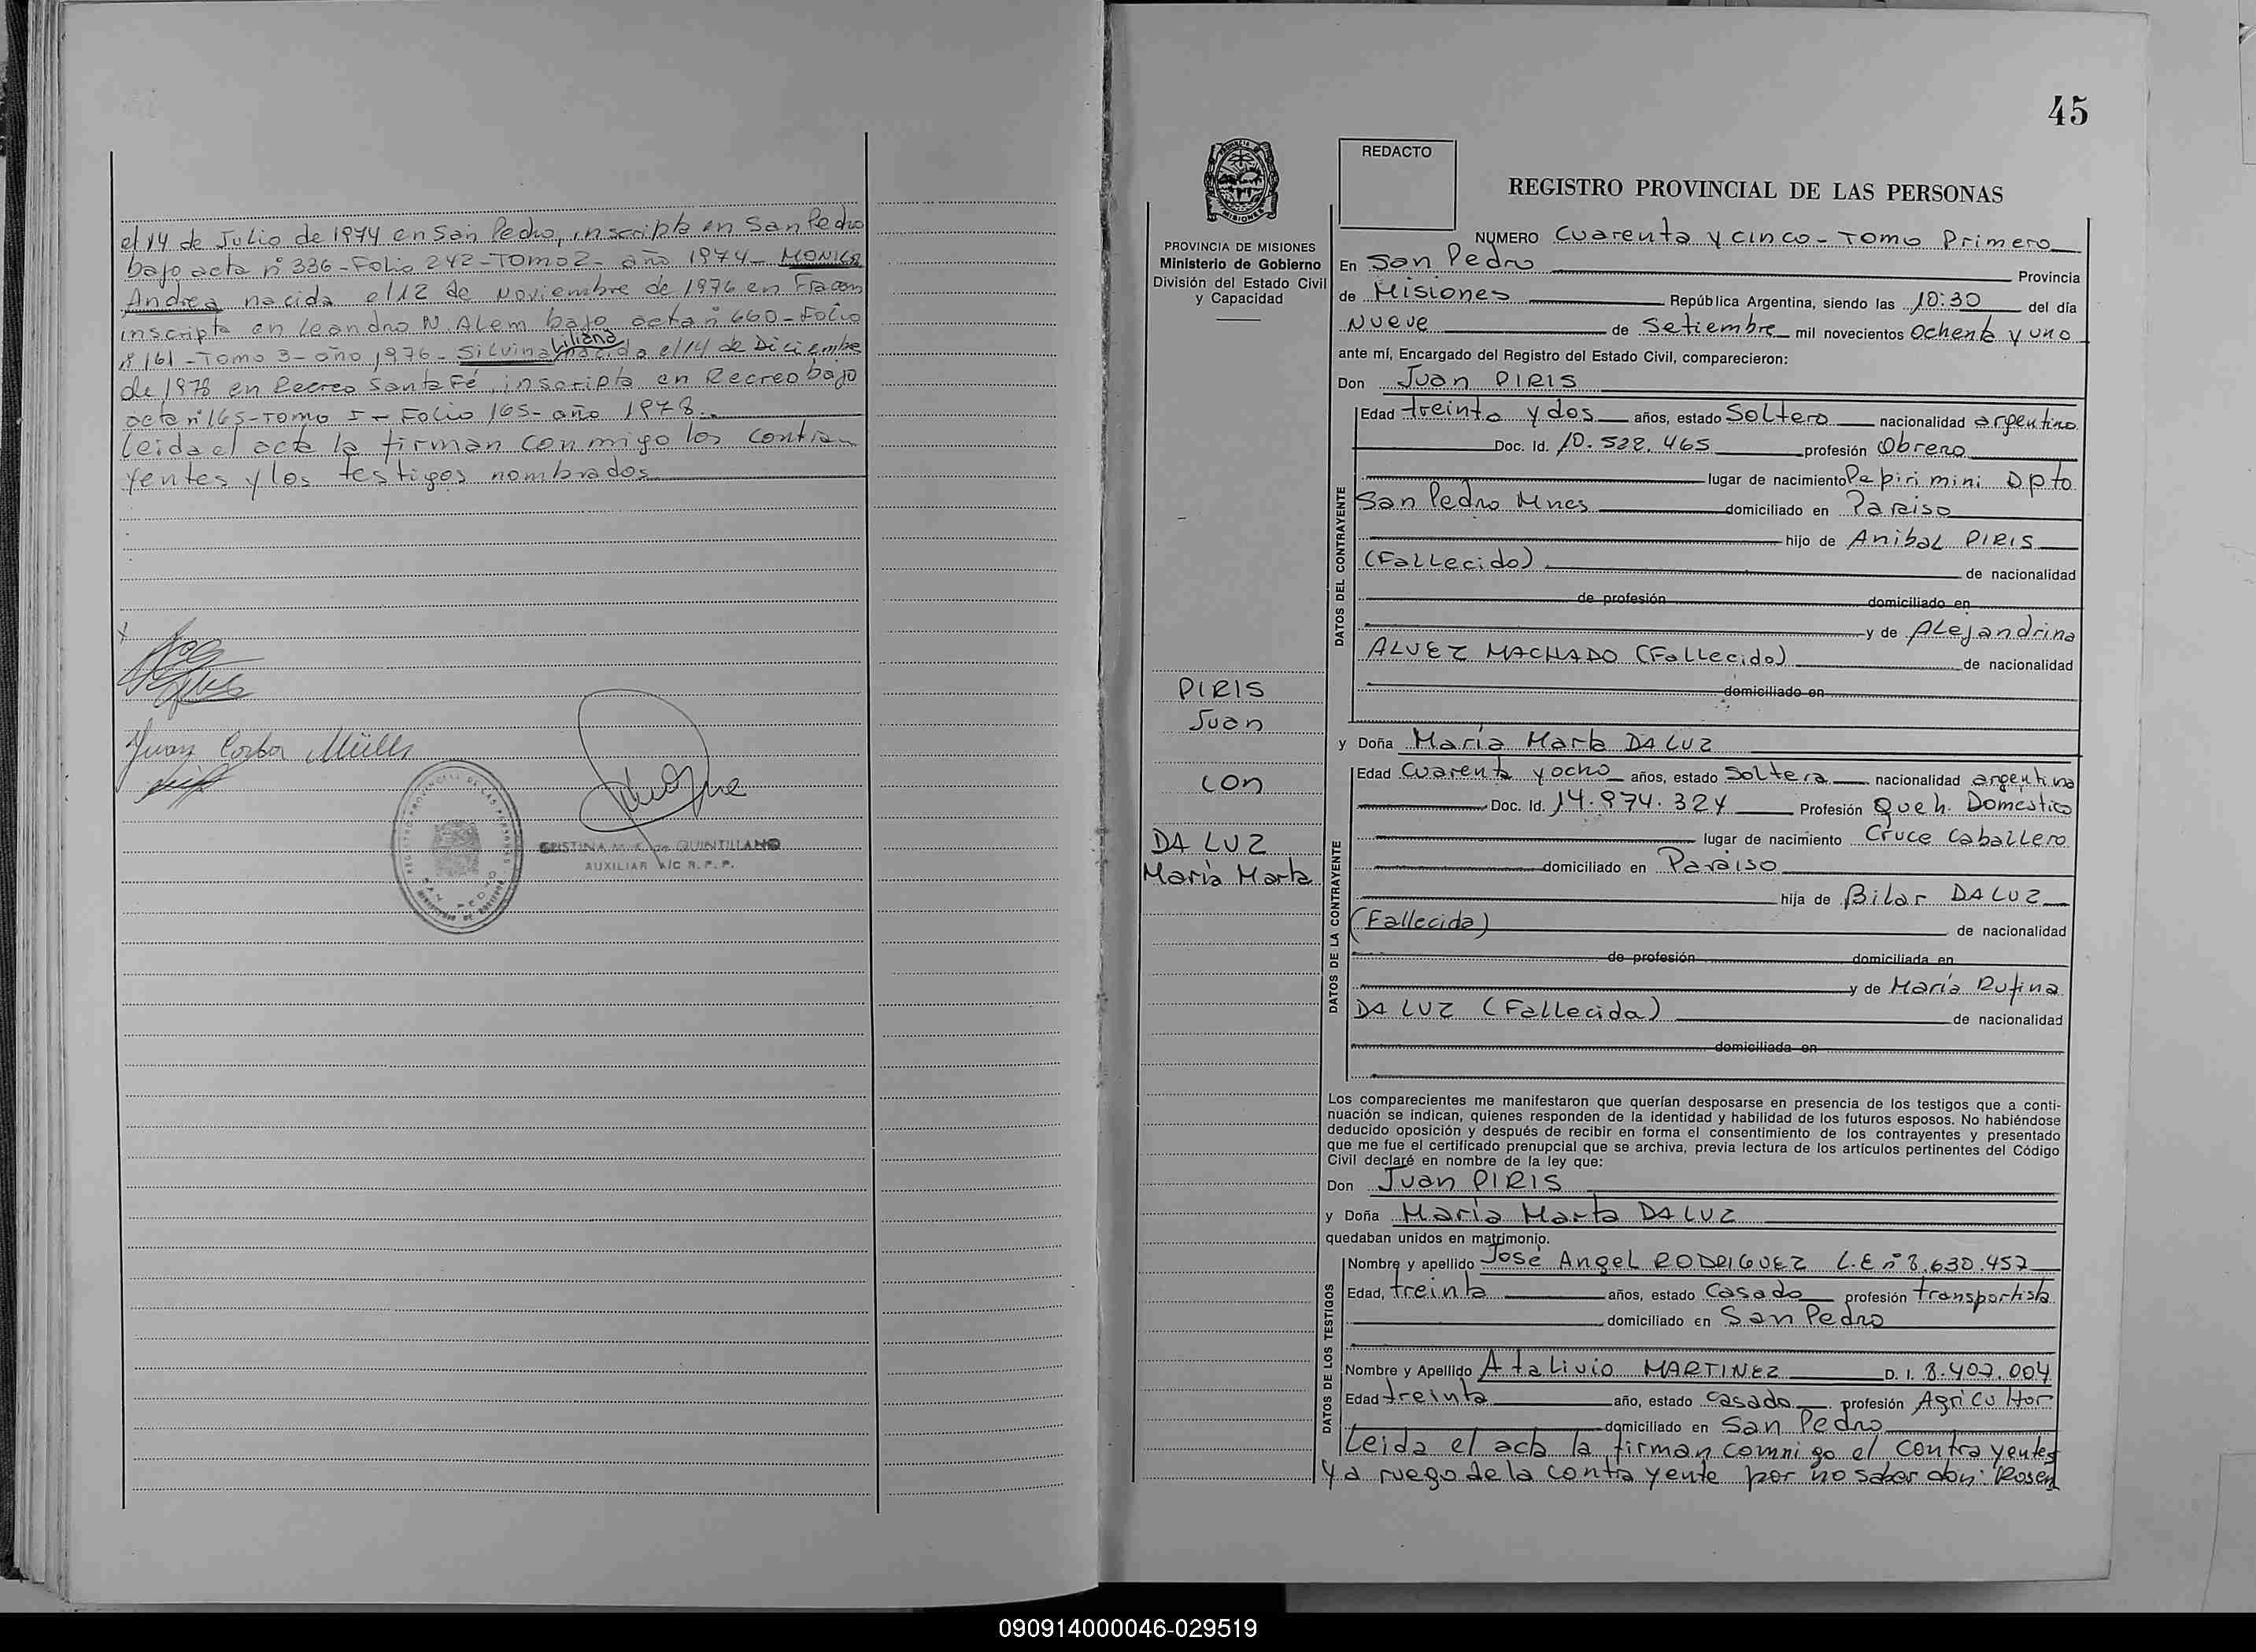 el 14 de Julio de 1974 en San Pedro, inscripta en San Pedro
bajo acta nº 336 - Folio 242 - Tomo 2 - año 1974 - MONICA
Andrea nacida el 12 de Noviembre de 1976 en Fracan
inscripta en Leandro N. Alem bajo acta nº 660 - Folio
nº 161 - Tomo 3 - año 1976 - Silvina Liliana nacida el 14 de Diciembre
de 1978 en Recreo Santa Fé, inscripta en Recreo bajo
acta nº 165 - Tomo I - Folio 165 - año 1978.
Leida el acta la firman conmigo los contra
yentes y los testigos nombrados
Juan Carlos Müller
REGISTRO PROVINCIAL DE LAS PERSONAS
SAN PEDRO
CRISTINA M. de QUINTILLANO
AUXILIAR A/C R. P. P.
45
PROVINCIA DE MISIONES
Ministerio de Gobierno
División del Estado Civil
y Capacidad
PIRIS
Juan
con
DA LUZ
María Marta
REDACTO
REGISTRO PROVINCIAL DE LAS PERSONAS
NUMERO Cuarenta y cinco - Tomo Primero
En San Pedro Provincia
de Misiones República Argentina, siendo las 10:30 del día
Nueve de Setiembre mil novecientos Ochenta y uno
ante mí, Encargado del Registro del Estado Civil, comparecieron:
Don Juan PIRIS
DATOS DEL CONTRAYENTE
Edad treinta y dos años, estado Soltero nacionalidad argentino
Doc. Id. 10.522.465 profesión Obrero
lugar de nacimiento Pepiri mini Dpto
San Pedro Mnes domiciliado en Paraiso
hijo de Anibal PIRIS
(Fallecido) de nacionalidad
de profesión domiciliado en
y de Alejandrina
ALVEZ MACHADO (Fallecido) de nacionalidad
domiciliado en
y Doña María Marta DA LUZ
DATOS DE LA CONTRAYENTE
Edad Cuarenta y ocho años, estado Soltera nacionalidad argentina
Doc. Id. 14.974.324 Profesión Queh. Domestico
lugar de nacimiento Cruce Caballero
domiciliado en Paraiso
hija de Bilar DA LUZ
(Fallecida) de nacionalidad
de profesión domiciliada en
y de María Rufina
DA LUZ (Fallecida) de nacionalidad
domiciliada en
Los comparecientes me manifestaron que querían desposarse en presencia de los testigos que a conti-
nuación se indican, quienes responden de la identidad y habilidad de los futuros esposos. No habiéndose
deducido oposición y después de recibir en forma el consentimiento de los contrayentes y presentado
que me fue el certificado prenupcial que se archiva, previa lectura de los artículos pertinentes del Código
Civil declaré en nombre de la ley que:
Don Juan PIRIS
y Doña María Marta DA LUZ
quedaban unidos en matrimonio.
DATOS DE LOS TESTIGOS
Nombre y apellido José Angel RODRIGUEZ L.E nº 8.630.457
Edad, treinta años, estado Casado profesión transportista
domiciliado en San Pedro
Nombre y Apellido Atalivio MARTINEZ D. I. 8.407.004
Edad treinta año, estado casado profesión Agricultor
domiciliado en San Pedro
Leida el acta la firman comnigo el contrayentes
y a ruego de la contrayente por no saber don: Rosen
090914000046-029519